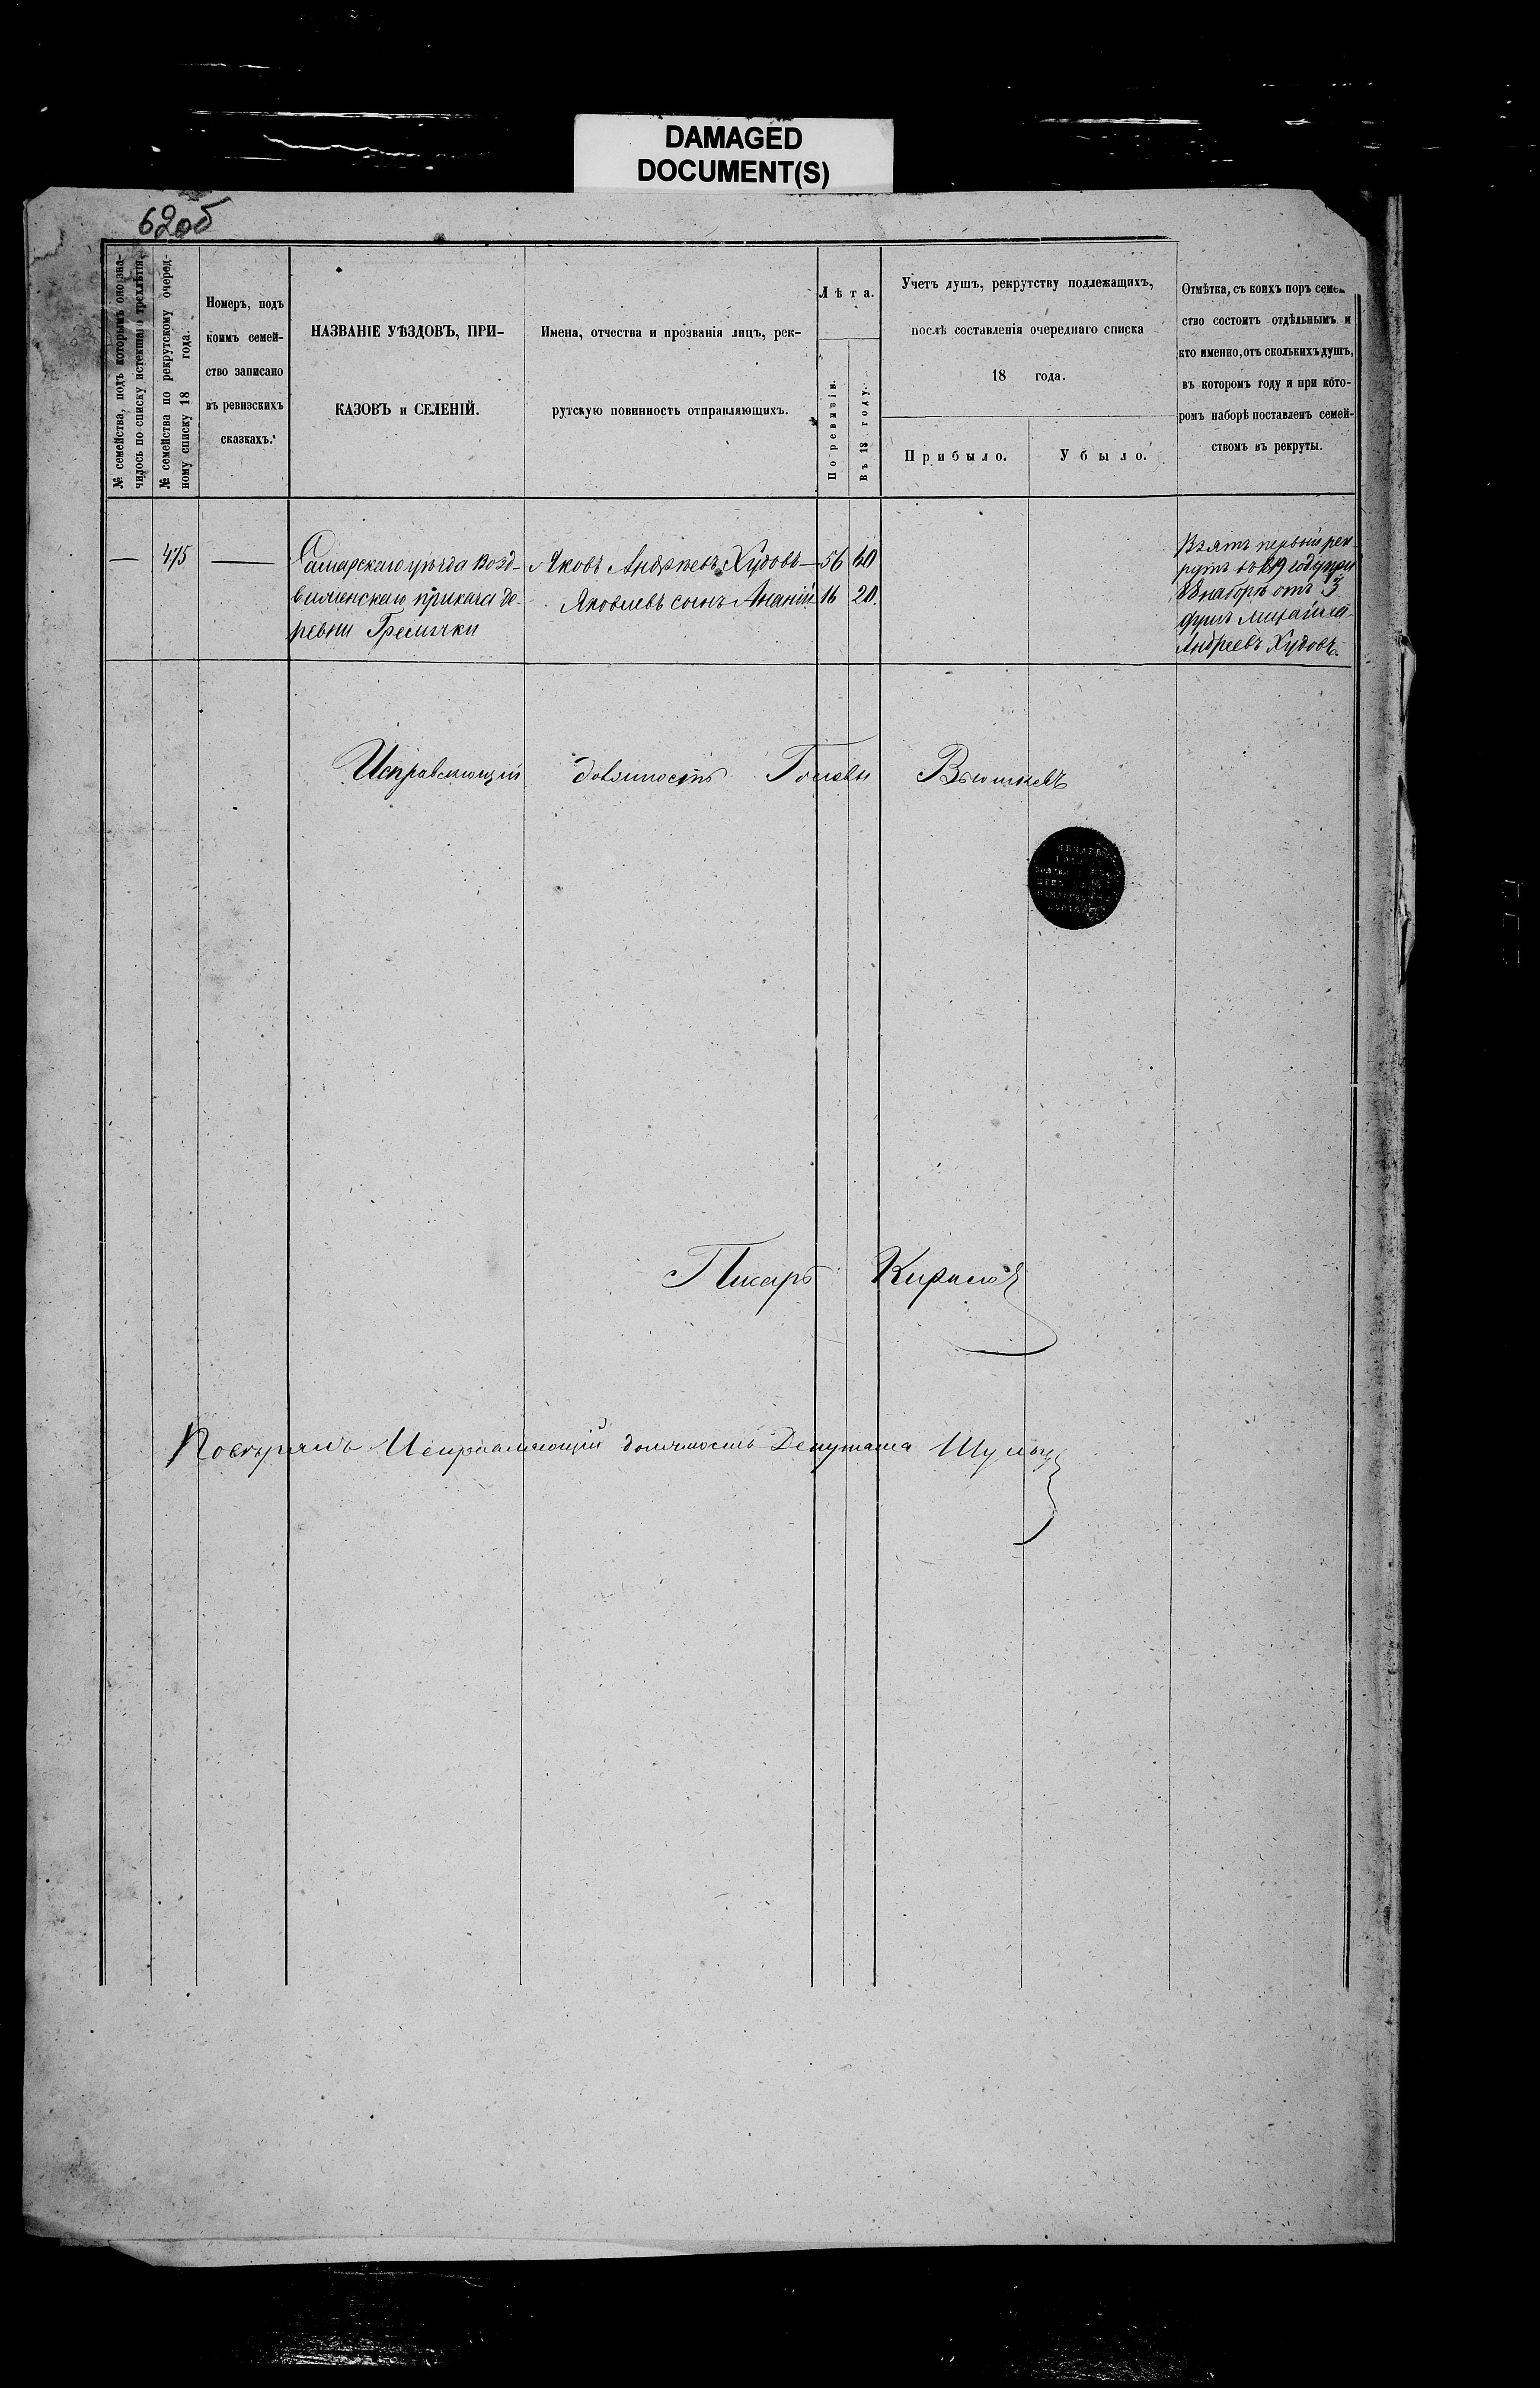 DAMAGED
DOCUMENT(S)
62об
№ семейства, подъ которымъ оно зна-
чилось по списку истекшаго трехлѣтія.
№ семейства по рекрутскому очеред-
ному списку 18 года.
Номеръ, подъ
коимъ семей-
ство записано
въ ревизскихъ
сказкахъ.
НАЗВАНІЕ УѢЗДОВЪ, ПРИ-
КАЗОВЪ и СЕЛЕНІЙ.
Имена, отчества и прозванія лицъ, рек-
рутскую повинность отправляющихъ.
Лѣта.
По ревизіи.
Въ 18 году.
Учетъ душъ, рекрутству подлежащихъ,
послѣ составленія очереднаго списка
18 года.
Прибыло.
Убыло.
Отмѣтка, съ коихъ поръ семей-
ство состоитъ отдѣльнымъ и
кто именно, отъ сколькихъ душъ,
въ которомъ году и при кото-
ромъ наборѣ поставленъ семей-
ствомъ въ рекруты.
— 475 —
Самарскаго уѣзда Возд-
виженскаго приказа де-
ревни Гремячки
Яковъ Андреевъ Худовъ — 56 60
Яковлевъ сынъ Ананій 16 20.
Взятъ первый рек-
рутъ въ 819 году при
88 наборѣ отъ 3
душъ Михайла
Андреевъ Худовъ.
Исправляющій должность Головы Вьюшковъ
Писарь Кириловъ
Повѣрялъ Исправляющій должность Депутата Шульц